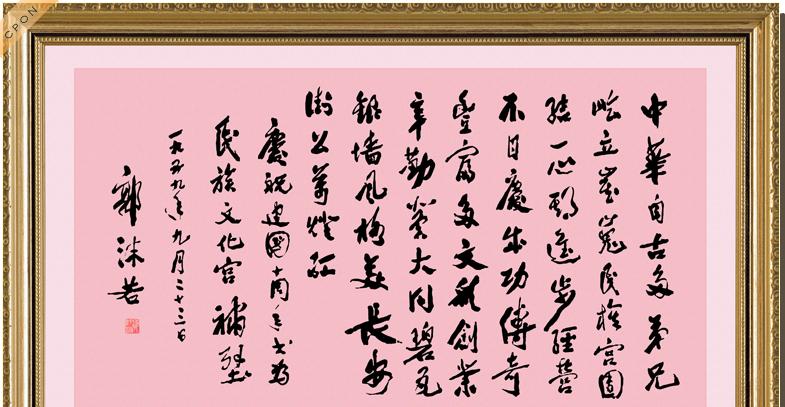 中華自古多弟兄
屹立嵬嵬民族宮圍
結一心新進步經營
不日慶成功傳奇
豐富多文采創業
辛勤慕大同碧瓦
銀墻風格美長安
街公華燈紅
慶祝建國十周年書為
民族文化宮補壁
一九五九年九月二十三日
郭沫若
CPON